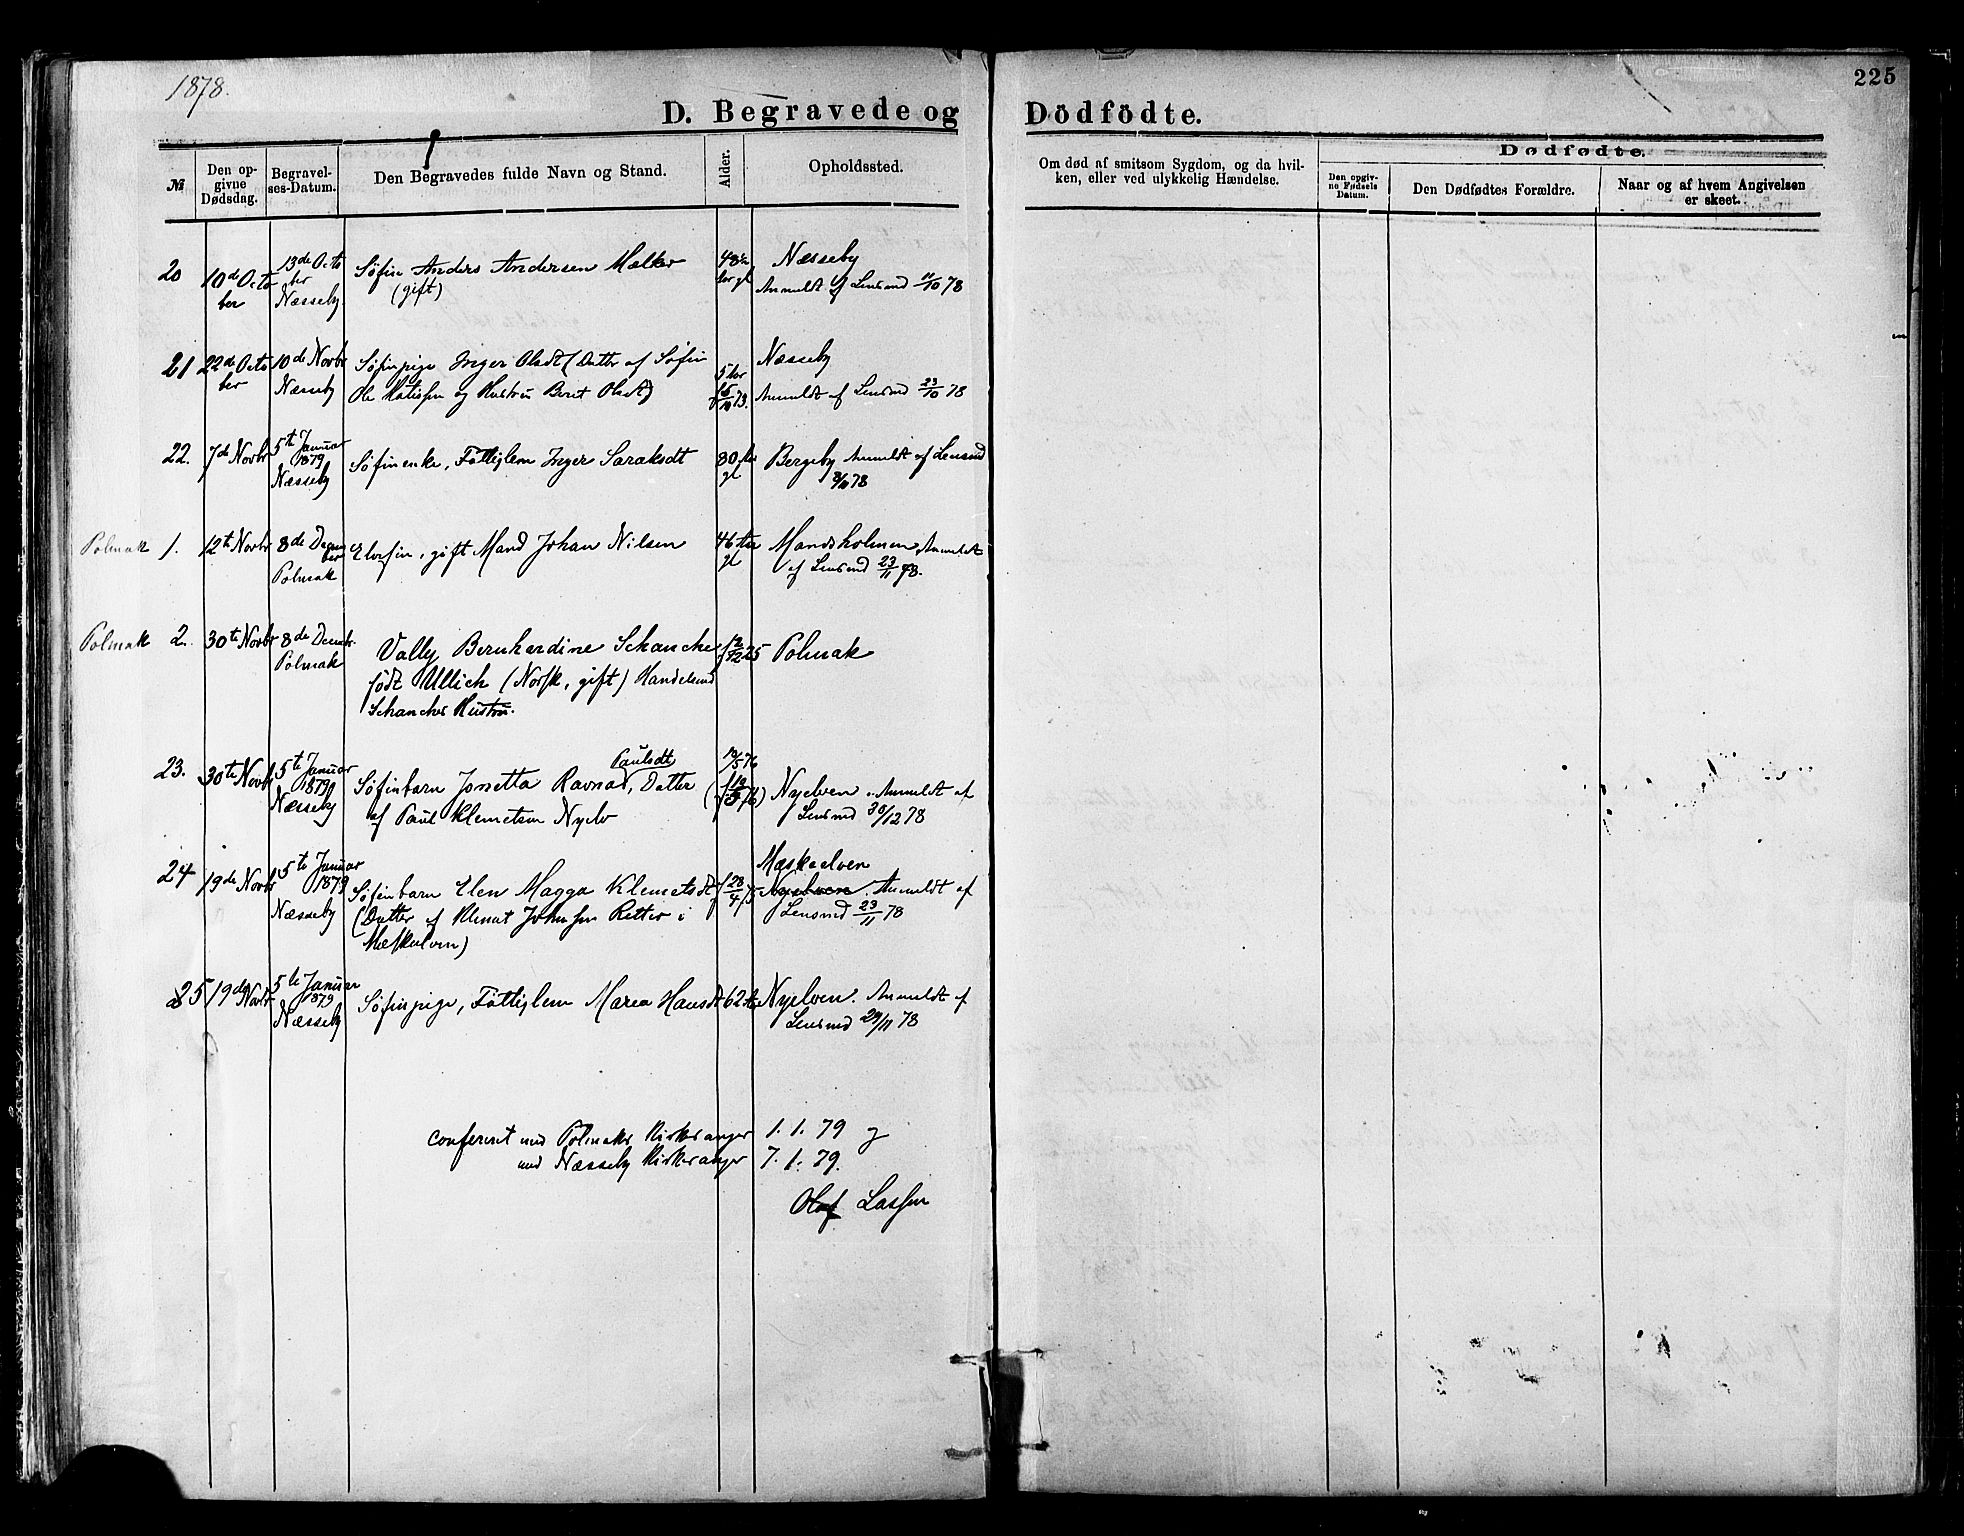 1878.
225
D. Begravede og Dödfödte.
№
Den op-
givne
Dødsdag.
Begravel-
ses-Datum.
Den Begravedes fulde Navn og Stand.
Alder.
Opholdssted.
Om død af smitsom Sygdom, og da hvil-
ken, eller ved ulykkelig Hændelse.
Dødfødte.
Den opgiv-
ne Fødsels
Datum.
Den Dødfødtes Forældre.
Naar og af hvem Angivelsen
er skeet.
20
10de Octo
ber
13de Octo
ber
Næsseby
Søfin Anders Andersen
(gift)
48
Næsseby
Anmeldt af Lensmd 11/10 78
21
22de Octo
ber
10de Novbr
Næsseby
Søfinpige Inger Olsdt (Datter af Søfin
Ole Matissen og Hustru Beret Olsdt)
5 Aar
Næsseby
Anmeldt af Lensmd 23/10 78
22.
7de Novbr
5te Januar
1879
Næsseby
Søfinenke, Fattiglem Inger Saraksdt
80 Aar
gl
Bergeby Anmeldt af Lensmd
8/11 78
Polmak 1.
12te Novbr
8de Decem
ber
Polmak
Elvefin, gift Mand Johan Nilsen
46 Aar
gl
Mandsholmen Anmeldt
af Lensmd 23/11 78.
Polmak 2.
30te Novbr
8de Decembr
Polmak
Vally Bernhardine Schanche
født Ullich (Norsk, gift) Handelsmd
Schanches Hustru.
Polmak
23.
30te Novbr
5te Januar
1879
Næsseby
Paulsdt
Søfinbarn Jonetta Ravnad, Datter
af Paul Klemetsen Nyelv
19/5 76
(f 19/5 76)
Nyelven. Anmeldt af
Lensmd 30/12 78
24
19de Novbr
5te Januar
1879
Næsseby
Søfinbarn Elen Magga Klemetsdt
(Datter af Klemet Johnsen Retter i
Mæskelven)
f 28/4 75
Mæskelven
Nyelven. Anmeldt af
Lensmd 23/11 78
25
19de Novbr
5te Januar
1879
Næsseby
Søfinpige, Fattiglem Marea Hansdt
62
Nyelven. Anmeldt af
Lensmd 29/11 78
Confereret med Polmaks Kirkesanger 1. 1. 79 og
med Næsseby Kirkesanger 7. 1. 79.
Olaf Lassen